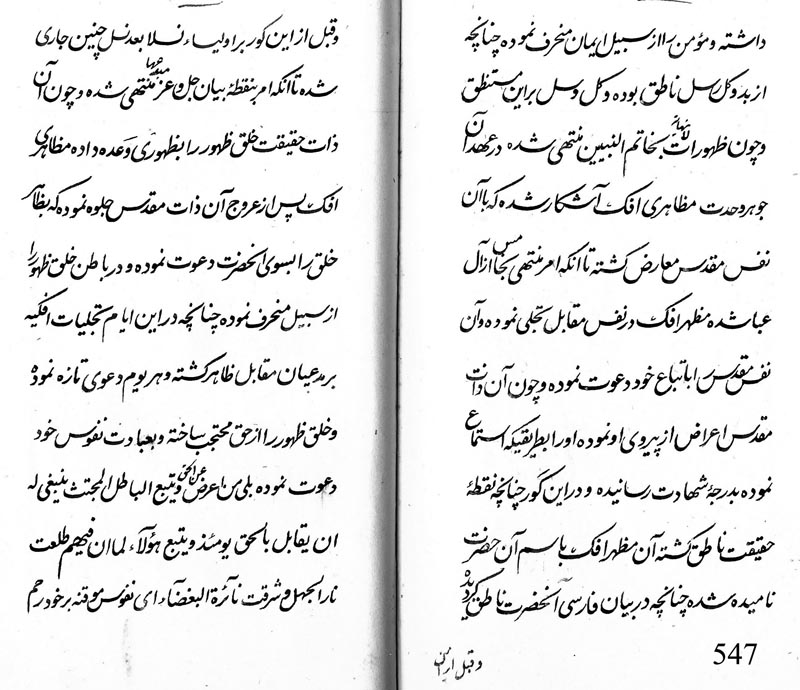 داشته و مؤمن را از سبیل ایمان منحرف نموده چنانچه
از بدو کل رسل ناطق بوده و کل وسل بر این مستنطق
و چون ظهورات لانهایه بخاتم النبیین منتهی شده در عهد آن
جوهر وحدت مظاهری افک آشکار شده که با آن
نفس مقدس معارض گشته تا آنکه امر منتهی بخامس از آل
عبا شده مظهر افک در نفس مقابل تجلی نموده و آن
نفس مقدس را باتباع خود دعوت نموده و چون آن ذات
مقدس اعراض از پیروی او نموده او را بطریقیکه استماع
نموده بدرجهٔ شهادت رسانیده و در این کور چنانچه نقطهٔ
حقیقت ناطق گشته آن مظهر افک باسم آن حضرت
نامیده شده چنانچه در بیان فارسی آنحضرت ناطق گردیده
و قبل از این
547
و قبل از این کور بر اولیاء نسلا بعد نسل چنین جاری
شده تا آنکه امر بنقطهٔ بیان جل و عز منتهی شده و چون آن
ذات حقیقت خلق ظهور را بظهوری وعده داده مظاهری
افک پس از عروج آن ذات مقدس جلوه نموده که بظاهر
خلق را بسوی آنحضرت دعوت نموده و در باطن خلق ظهور را
از سبیل منحرف نموده چنانچه در این ایام تجلیات افکیه
بر مدعیان مقابل ظاهر گشته و هر یوم دعوی تازه نموده
و خلق ظهور را از حق محتجب ساخته و بعبادت نفوس خود
دعوت نموده بلی من اعرض عن الحق و یتبع الباطل المجتث ینبغی له
ان یقابل بالحق یومئذ و یتبع هؤلآء لما ان فیهم طلعت
نار الجهل و شرقت نآئرة البغضآء ای نفوس موقنه بر خود رحم